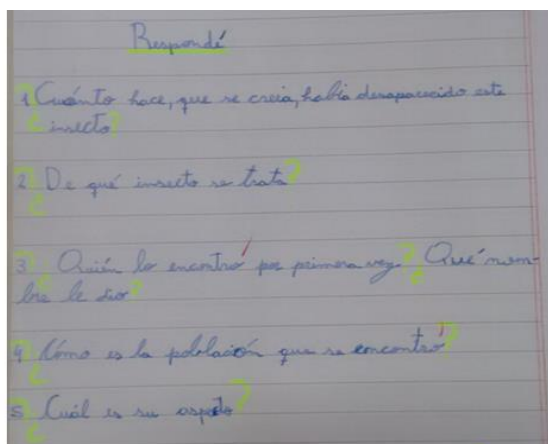 Respondé
1 ¿Cuánto hace, que se creía, había desaparecido este
insecto?
2 ¿De qué insecto se trata?
3 ¿Quién lo encontró por primera vez? ¿Qué nom-
bre le dio?
4 ¿Cómo es la población que se encontró?
5 ¿Cuál es su aspecto?